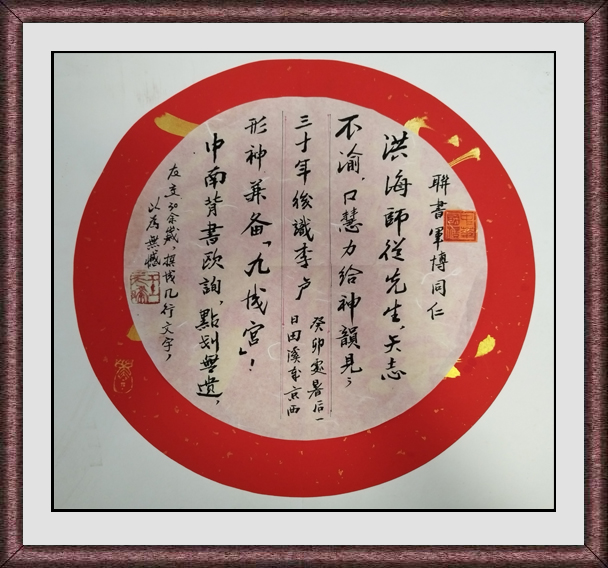 聨書軍博同仁
洪海師從先生,矢志
不渝,口慧力給神韻見;
三十年後識李卢
形神兼备「九成宮」!
中南背書欧詢,點划無遺,
友交30余歲,撰成几行文字,
以為無憾
癸卯處暑后一
日田溪东京西